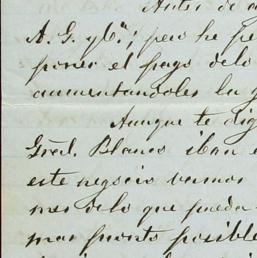 Antes de
A. G. y bn; pero he pe
poner el pago delo
aumentandoles la g
Aunque te dig
Gral. Blanco iban
este negocio veamos
mas delo que pueda
mas pronto posible